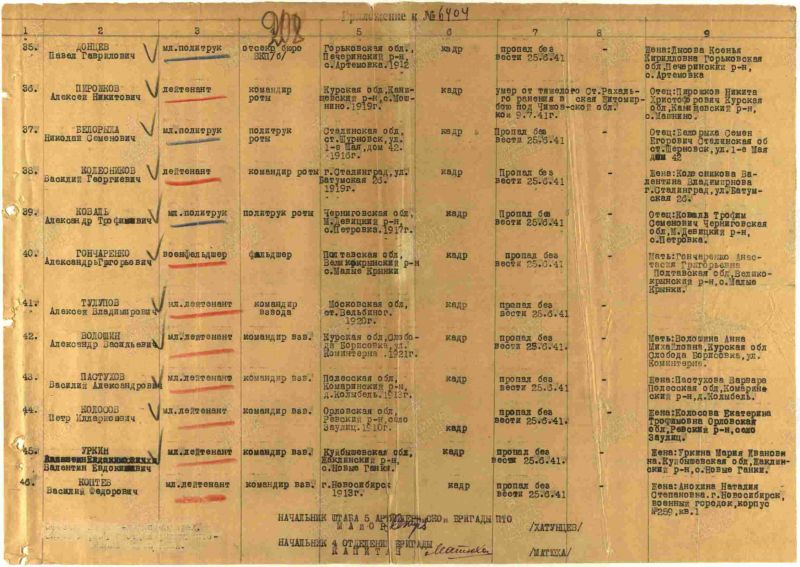 Приложение к №6404
208
1 2 3 4 5 6 7 8 9
35. ДОНЦЕВ мл.политрук отсекр бюро Горьковская обл, кадр пропал без - Жена: Дысова Ксенья
Павел Гаврилович ВКП/б/ Печеринский р-н, вести 25.6.41 Кирилловна Горьковская
с.Артемовка.1912 обл,Печеринский р-н,
с.Артемовка
36. ПИРОЖКОВ лейтенант командир Курская обл, кадр умер от тяжелого Ст.Рахаль- Отец:Пирожков Никита
Алексей Никитович роты щевский р-н,с. го ранения в ская Житомир- Христофрович Курская
нино.1919г. бою под ской обл. обл,Канищевский р-н,
кой 9.7.41г. с.Машнино.
37. БЕЛОРЫХА мл.политрук политрук Сталинская обл, кадр Пропал без - Отец:Белорыха Семен
Николай Семенович роты ст.Шурновск,ул. вести 25.6.41 Егорович Сталинская об
1-е Мая,дом 42. ст.Шерновск,ул.1-е Мая
1916г. дом 42
38. КОЛЕСНИКОВ лейтенант командир роты г.Сталинград,ул. кадр Пропал без - Жена:Колесникова Ва-
Василий Георгиевич Батумская 26. вести 25.6.41 лентина Владимирнова
1919г. г.Сталинград,ул.Батум-
ская 26.
39. КОВАЛЬ мл.политрук политрук роты Черниговская обл, кадр Пропал без - Отец:Коваль Трофим
Александр Трофимович М.Девицкий р-н, вести 25.6.41 Семенович Черниговская
с.Петровка.1917г. обл,М.Девицкий р-н,
с.Петровка.
40. ГОНЧАРЕНКО военфельдшер фельдшер Полтавская обл, кадр Пропал без - Мать:Гончаренко Анас-
АлександрГригорьевич Великокрынский р-н вести 25.6.41 тасия Григорьевна
с.Малые Крынки Полтавская обл,Велико-
крынский р-н,с.Малые
Крынки.
41. ТУЛУПОВ мл.лейтенант командир Московская обл, кадр пропал без -
Алексей Владимирович взвода ст.Вельбиног. вести 25.6.41
1920г.
42. ВОЛОШИН мл.лейтенант командир взв. Курская обл,Слобо- кадр пропал без - Мать:Волошина Анна
Александр Васильевич да Борисовка,ул. вести 25.6.41 Михайловна,Курская обл
Коминтерна.1921г. Слобода Борисовка,ул.
Коминтерна.
43. ПАСТУХОВ мл.лейтенант командир взв. Полесская обл, кадр пропал без - Жена:Пастухова Варвара
Василий Александрович Комаринский р-н, вести 25.6.41 Полесская обл,Комарине
д.Колыбель.1913г. ский р-н,д.Колыбель.
44. КОЛОСОВ мл.лейтенант командир взв. Орловская обл, кадр пропал без - Жена:Колосова Екатерина
Петр Илларионович Ревский р-н,село вести 25.6.41. Трофимовна Орловская
Заулиц.1910г. обл,Ревский р-н,село
Заулиц.
45. УРКИН мл.лейтенант командир взв. Куйбышевская обл, кадр пропал без - Жена:Уркина Мария Ивановн
Валентин Евдокимович Жаклинский р-н, вести 25.6.41 на.Куйбышевская обл,Жаклин-
с.Новые Ганки. ский р-н,с.Новые Ганки.
46. КОПТЕВ мл.лейтенант командир взв. г.Новосибирск кадр пропал без - Жена:Анохина Наталия
Василий Федорович 1913г. вести 25.6.41 Степановна.г.Новосибирск,
военный городок,корпус
№259,кв.1
НАЧАЛЬНИК ШТАБА 5 АРТИЛЛЕРИЙСКОЙ БРИГАДЫ ПТО
МАЙОР /ХАТУНЦЕВ/
НАЧАЛЬНИК 4 ОТДЕЛЕНИЯ БРИГАДЫ
КАПИТАН /МАТЮХА/